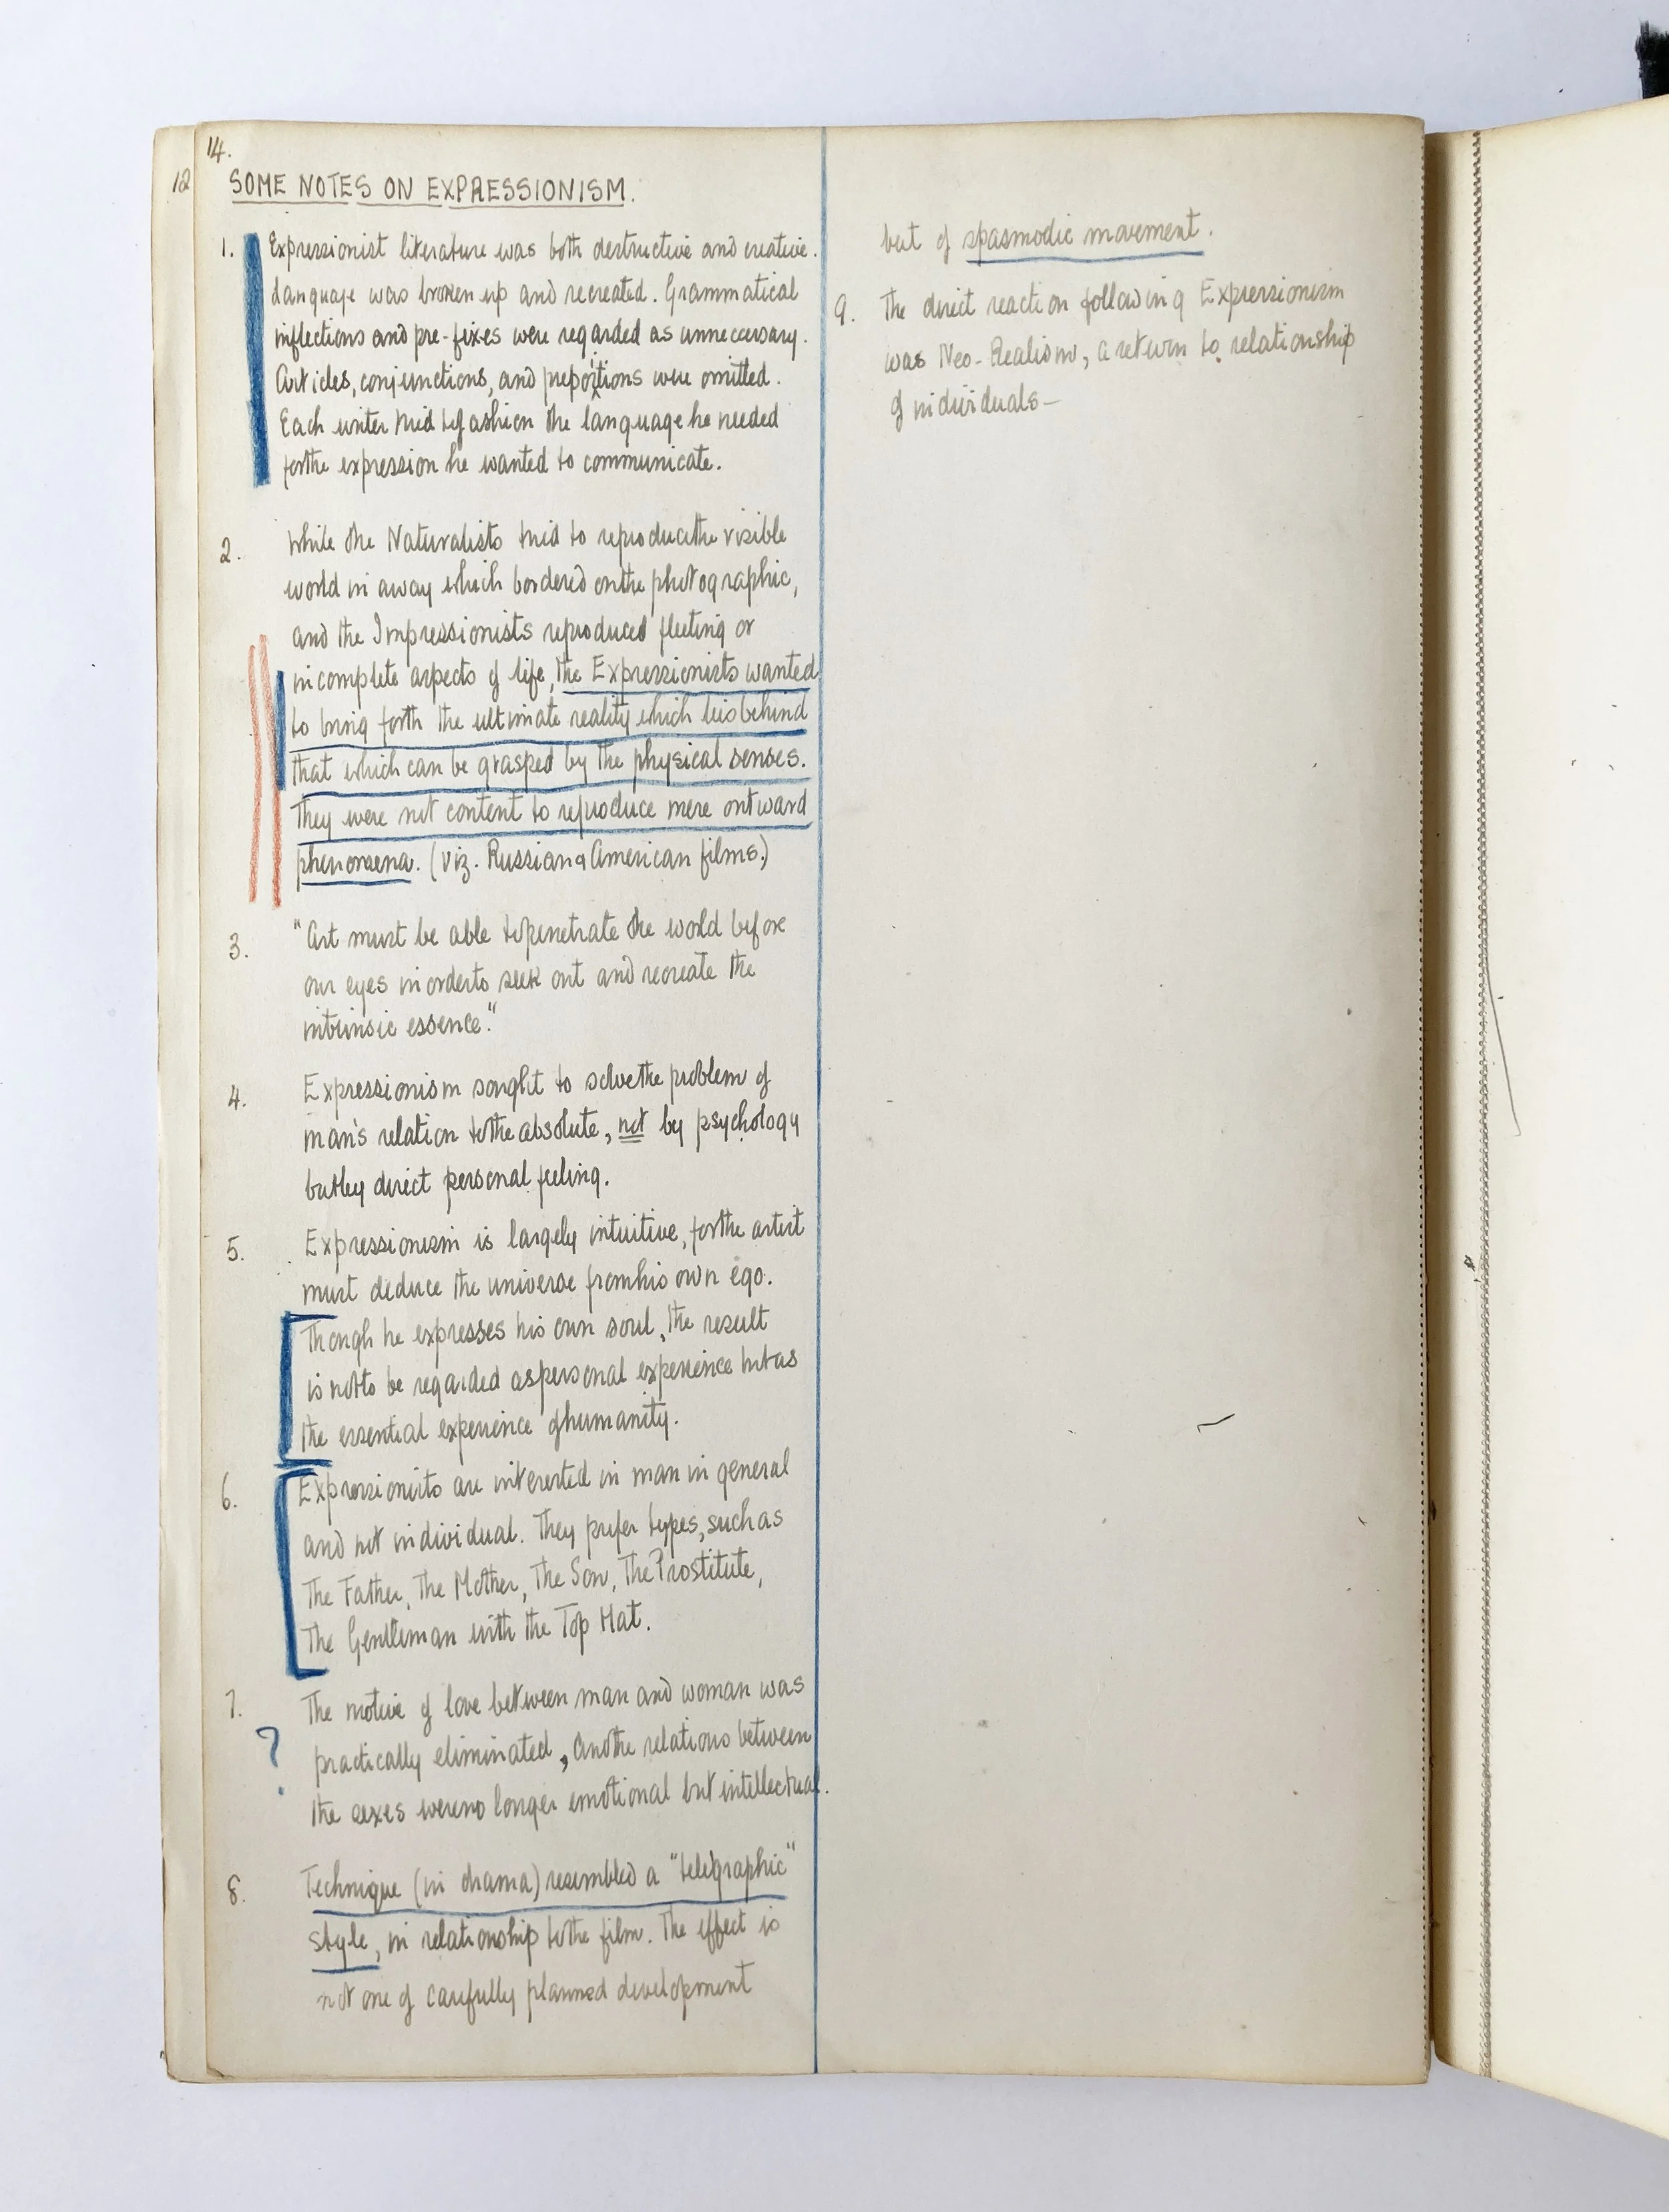 14.
12
SOME NOTES ON EXPRESSIONISM.
1. Expressionist literature was both destructive and creative.
Language was broken up and recreated. Grammatical
inflections and pre-fixes were regarded as unnecessary.
Articles, conjunctions, and prepositions were omitted.
Each writer tried to fashion the language he needed
for the expression he wanted to communicate.
2. While the Naturalists tried to reproduce the visible
world in a way which bordered on the photographic,
and the Impressionists reproduced fleeting or
incomplete aspects of life, the Expressionists wanted
to bring forth the ultimate reality which lies behind
that which can be grasped by the physical senses.
They were not content to reproduce mere outward
phenomena. (viz. Russian & American films.)
3. "Art must be able to penetrate the world before
our eyes in order to seek out and recreate the
intrinsic essence."
4. Expressionism sought to solve the problem of
man's relation to the absolute, not by psychology
but by direct personal feeling.
5. Expressionism is largely intuitive, for the artist
must deduce the universe from his own ego.
Though he expresses his own soul, the result
is not to be regarded as personal experience but as
the essential experience of humanity.
6. Expressionists are interested in man in general
and not individual. They prefer types, such as
The Father, The Mother, The Son, The Prostitute,
The Gentleman with the Top Hat.
7. The motive of love between man and woman was
? practically eliminated, and the relations between
the sexes were no longer emotional but intellectual.
8. Technique (in drama) resembled a "telegraphic"
style, in relationship to the film. The effect is
not one of carefully planned development
but of spasmodic movement.
9. The direct reaction following Expressionism
was Neo-Realism, a return to relationship
of individuals—